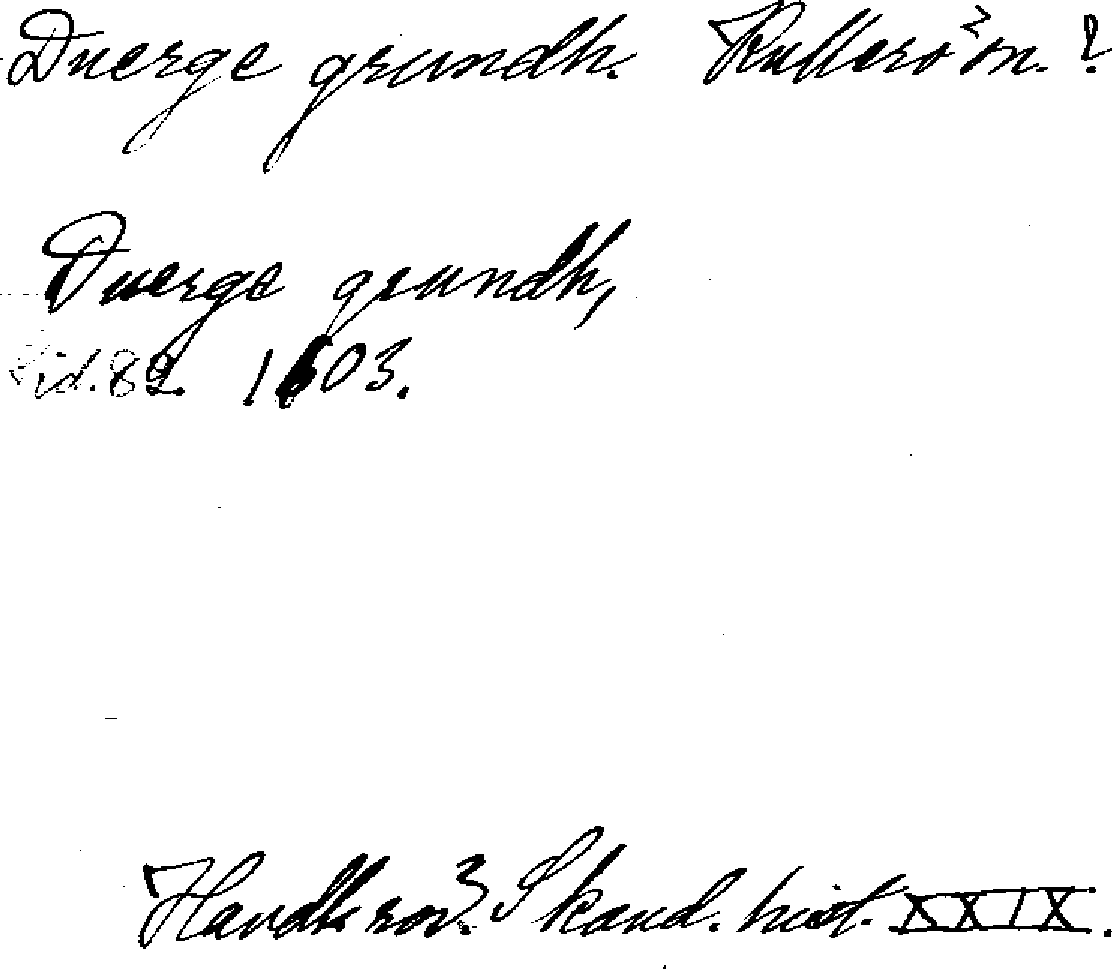 Duerge grundh. Kullerö m. ?
Duerge grundh,
Sid. 82. 1603.
Handl. rör. Skand. hist. XXIX.